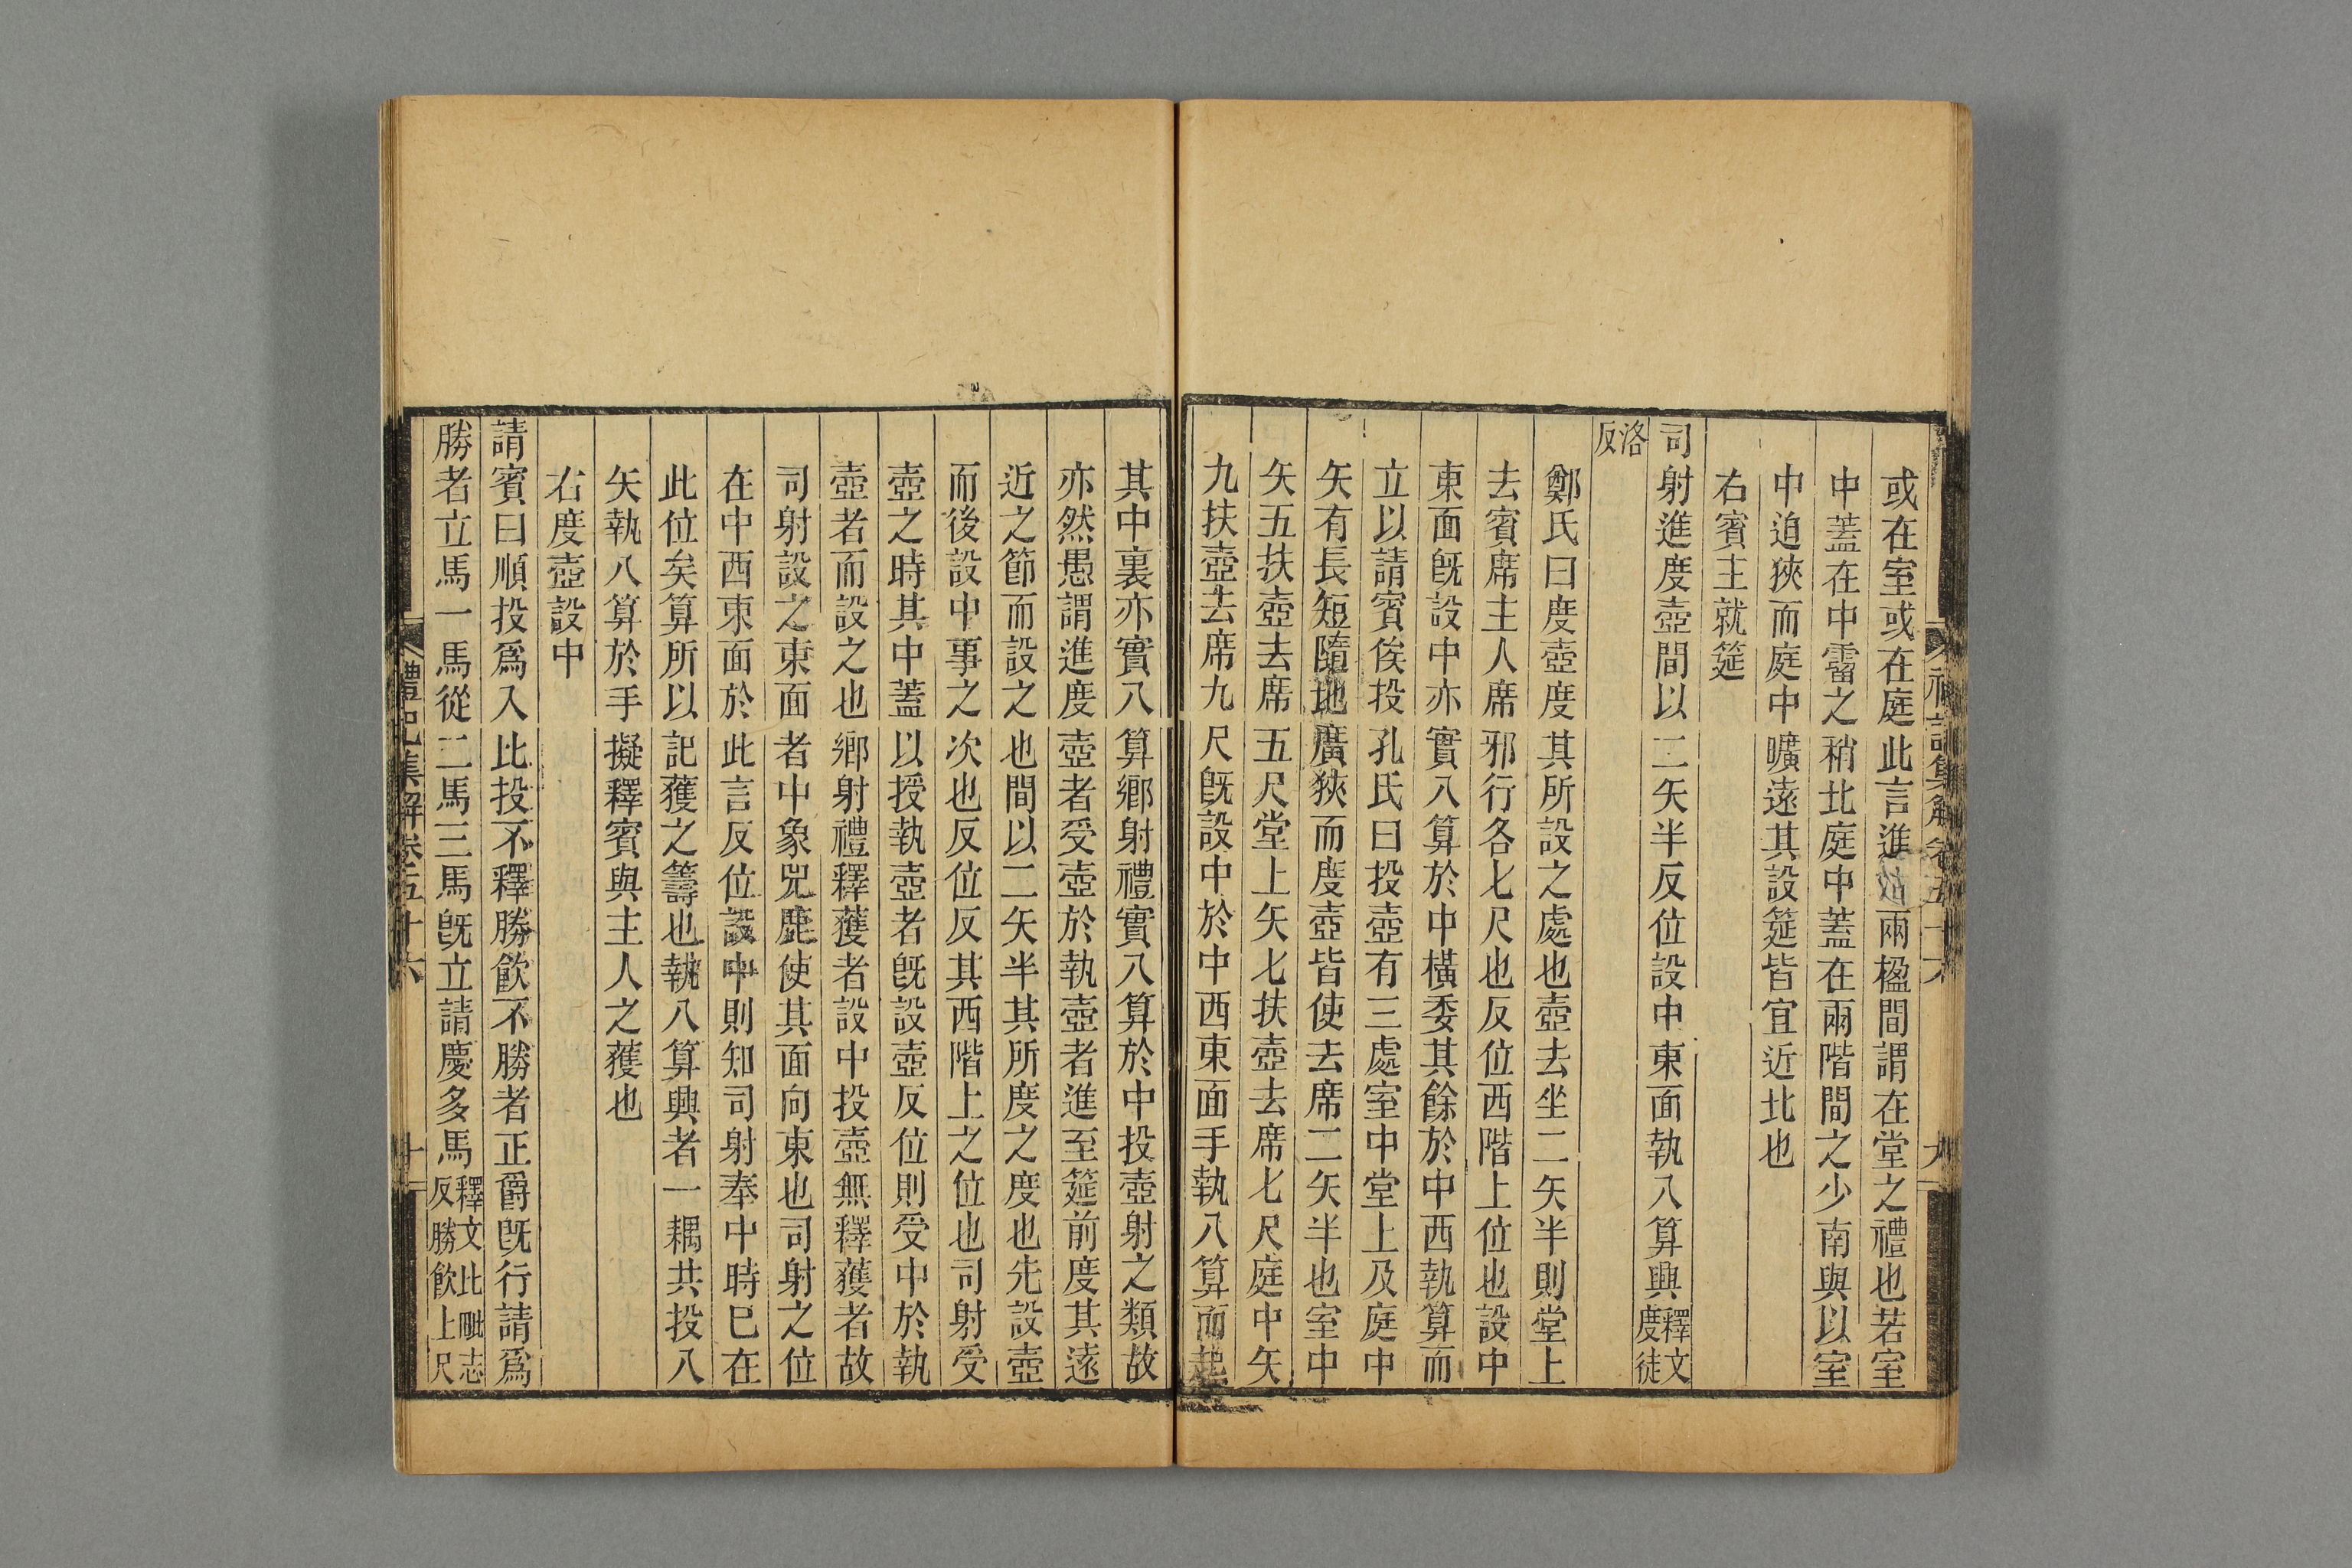 或在室或在庭此言進故兩楹間謂在堂之禮也若室
中蓋在中霤之稍北庭中蓋在兩階間之少南與以室
中迫狹而庭中曠遠其設筵皆宜近北也
右賓主就筵
司射進度壺間以二矢半反位設中東面執八算興釋文度徒
洛反
鄭氏曰度壺度其所設之處也壺去坐二矢半則堂上
去賓席主人席邪行各七尺也反位西階上位也設中
東面旣設中亦實八算於中橫委其餘於中西執算而
立以請賓俟投孔氏曰投壺有三處室中堂上及庭中
矢有長短隨地廣狹而度壺皆使去席二矢半也室中
矢五扶壺去席五尺堂上矢七扶壺去席七尺庭中矢
九扶壺去席九尺旣設中於中西東面手執八算而起
其中裏亦實八算鄉射禮實八算於中投壺射之類故
亦然愚謂進度壺者受壺於執壺者進至筵前度其遠
近之節而設之也間以二矢半其所度之度也先設壺
而後設中事之次也反位反其西階上之位也司射受
壺之時其中蓋以授執壺者旣設壺反位則受中於執
壺者而設之也鄉射禮釋獲者設中投壺無釋獲者故
司射設之東面者中象兕鹿使其面向東也司射之位
在中西東面於此言反位設中則知司射奉中時已在
此位矣算所以記獲之籌也執八算興者一耦共投八
矢執八算於手擬釋賓與主人之獲也
右度壺設中
請賓曰順投爲入比投不釋勝飮不勝者正爵旣行請爲
勝者立馬一馬從二馬三馬旣立請慶多馬釋文比毗志反勝飮上尺
禮記集解卷五十六
十